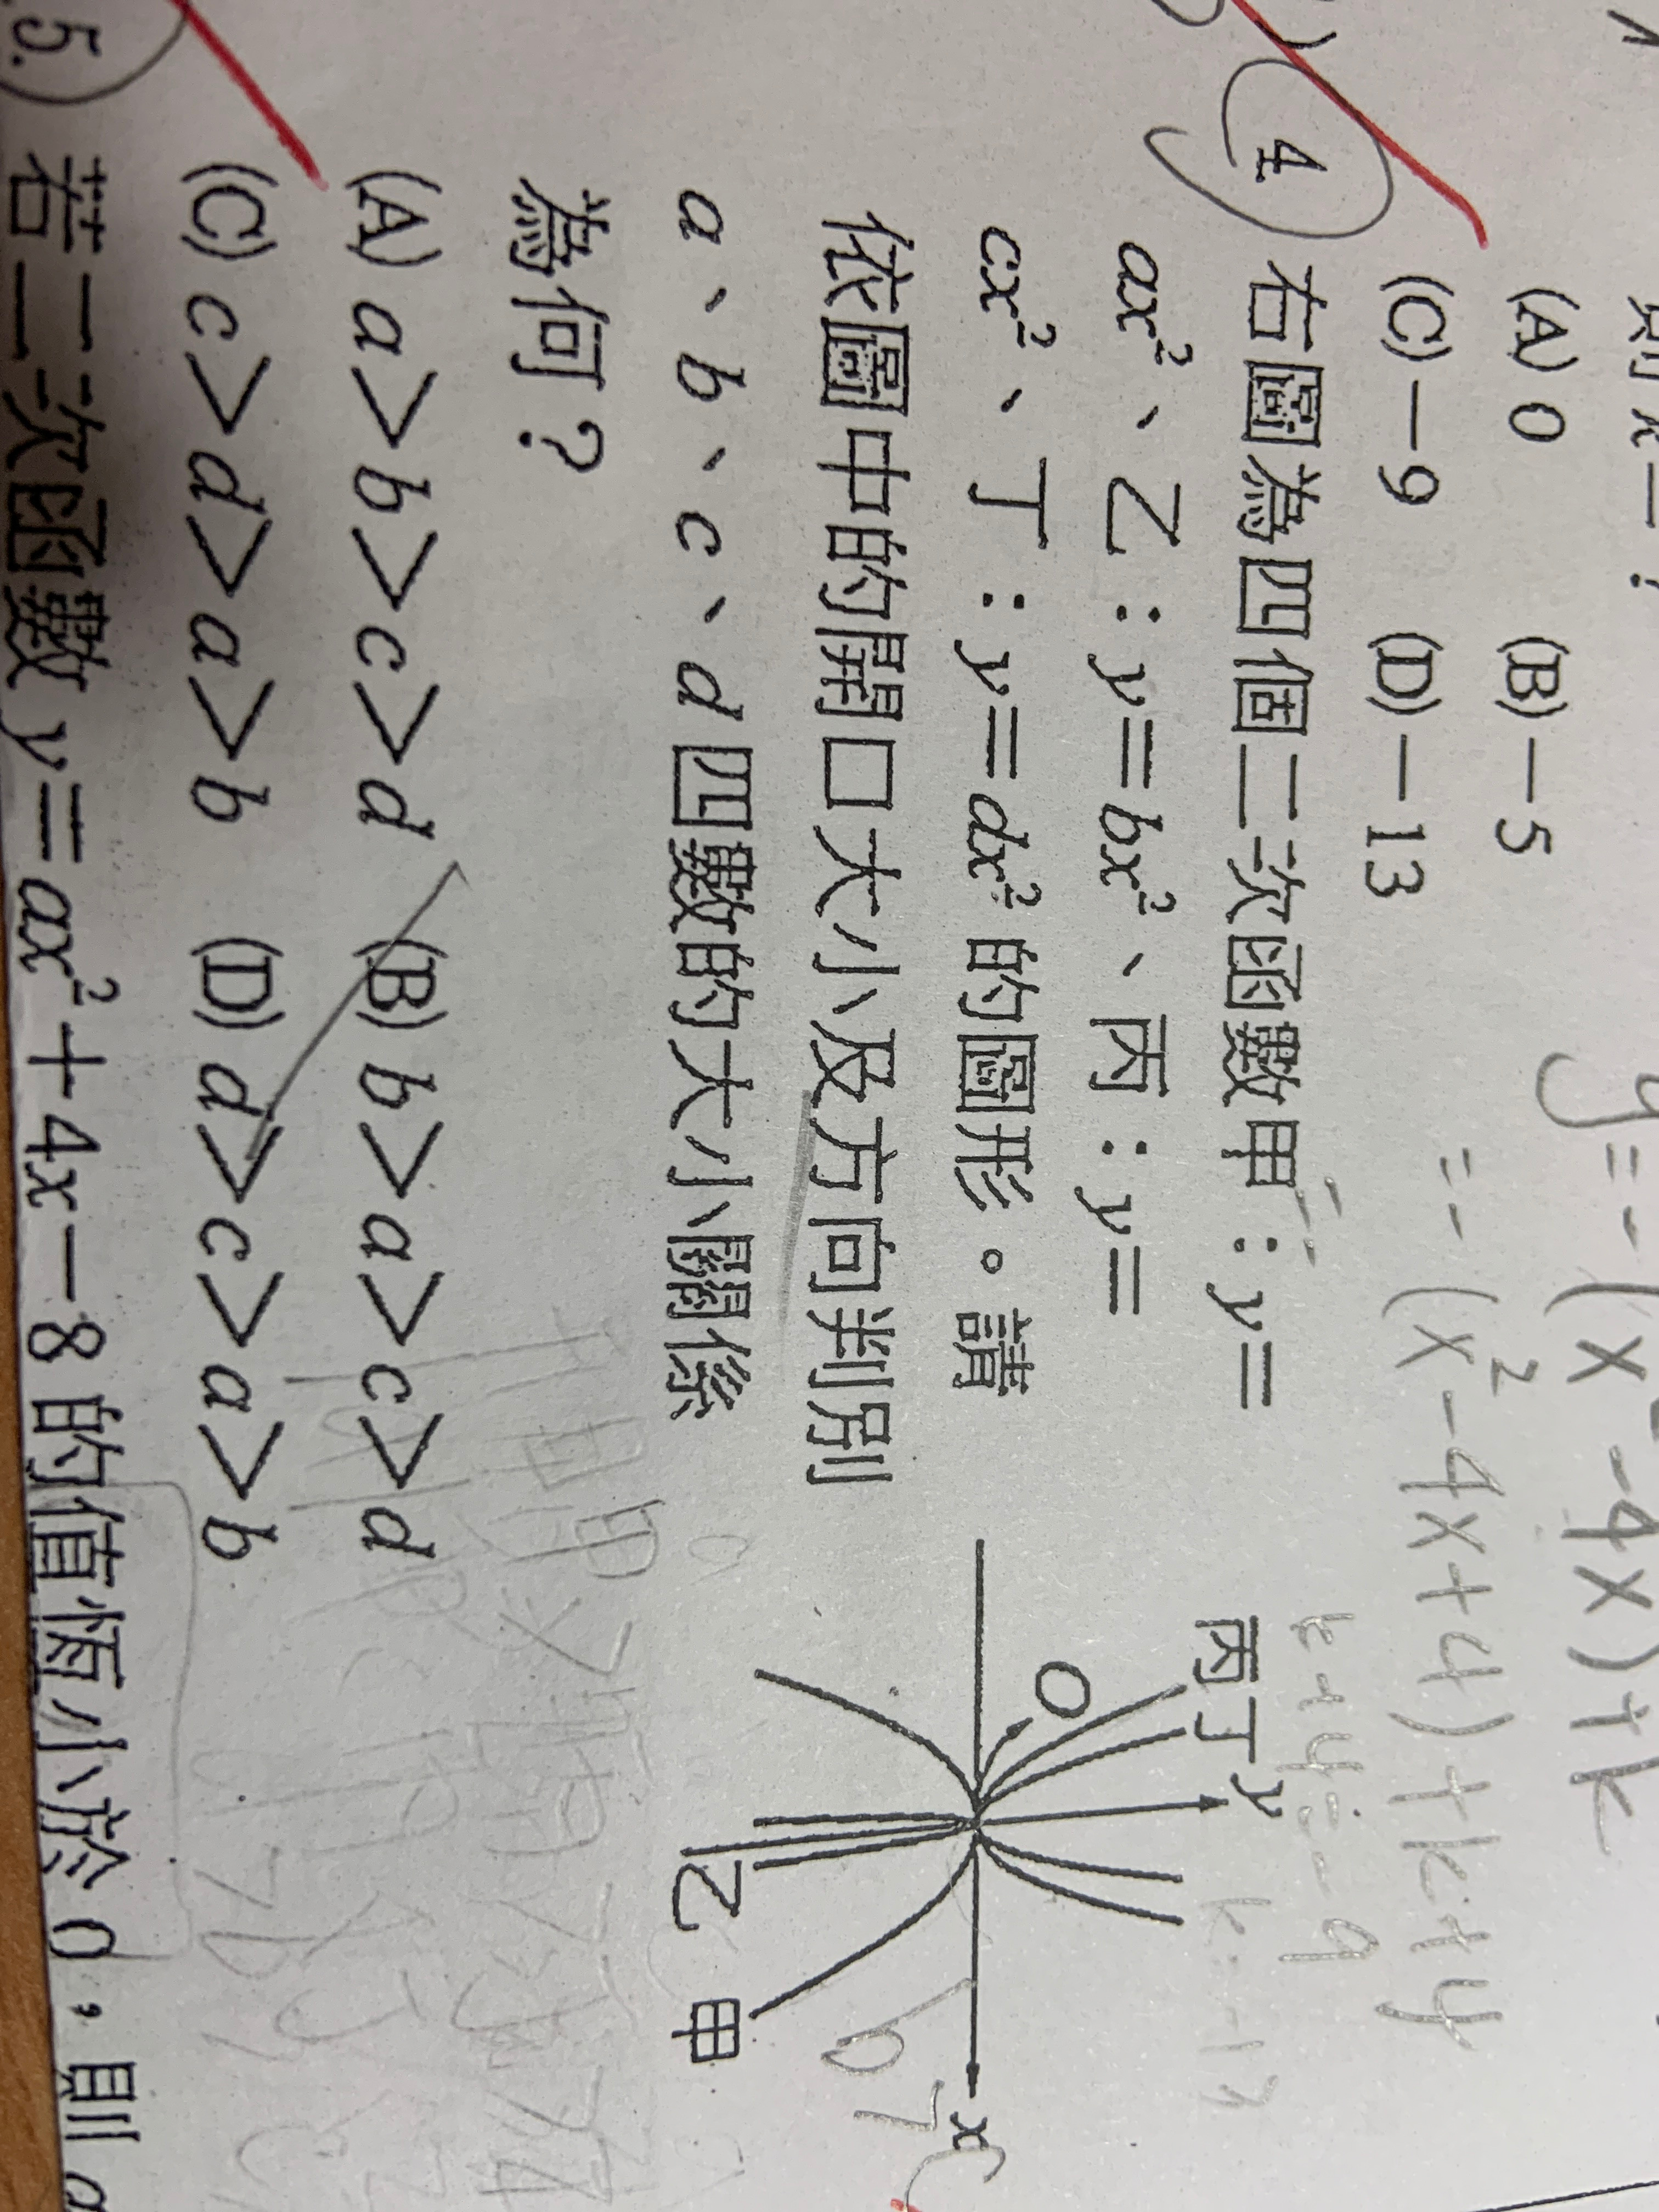 則 k = ?
(A) 0 (B) －5
(C) －9 (D) －13
y = -(x² - 4x) + k
= -(x² - 4x + 4) + k + 4
k + 4 = -9
k = -13
4. 右圖為四個二次函數甲：y＝
ax²、乙：y＝bx²、丙：y＝
cx²、丁：y＝dx² 的圖形。請
依圖中的開口大小及方向判別
a、b、c、d 四數的大小關係
為何？
丙 丁 y
O
x
乙 甲
(A) a＞b＞c＞d (B) b＞a＞c＞d
(C) c＞d＞a＞b (D) d＞c＞a＞b
5. 若二次函數 y＝ax²＋4x－8 的值恆小於 0，則 a